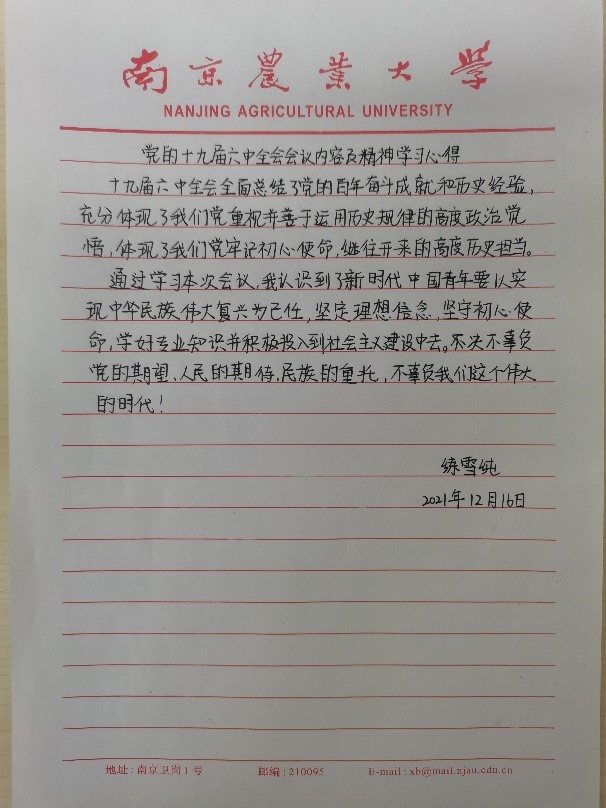 南京農業大學
NANJING AGRICULTURAL UNIVERSITY
党的十九届六中全会会议内容及精神学习心得
十九届六中全会全面总结了党的百年奋斗成就和历史经验,
充分体现了我们党重视并善于运用历史规律的高度政治觉
悟,体现了我们党牢记初心使命,继往开来的高度历史担当。
通过学习本次会议,我认识到了新时代中国青年要以实
现中华民族伟大复兴为己任,坚定理想信念,坚守初心使
命,学好专业知识并积极投入到社会主义建设中去。不决不辜负
党的期望、人民的期待、民族的重托,不辜负我们这个伟大
的时代!
练雪纯
2021年12月16日
地址:南京卫岗1号 邮编:210095 E-mail:xb@mail.njau.edu.cn